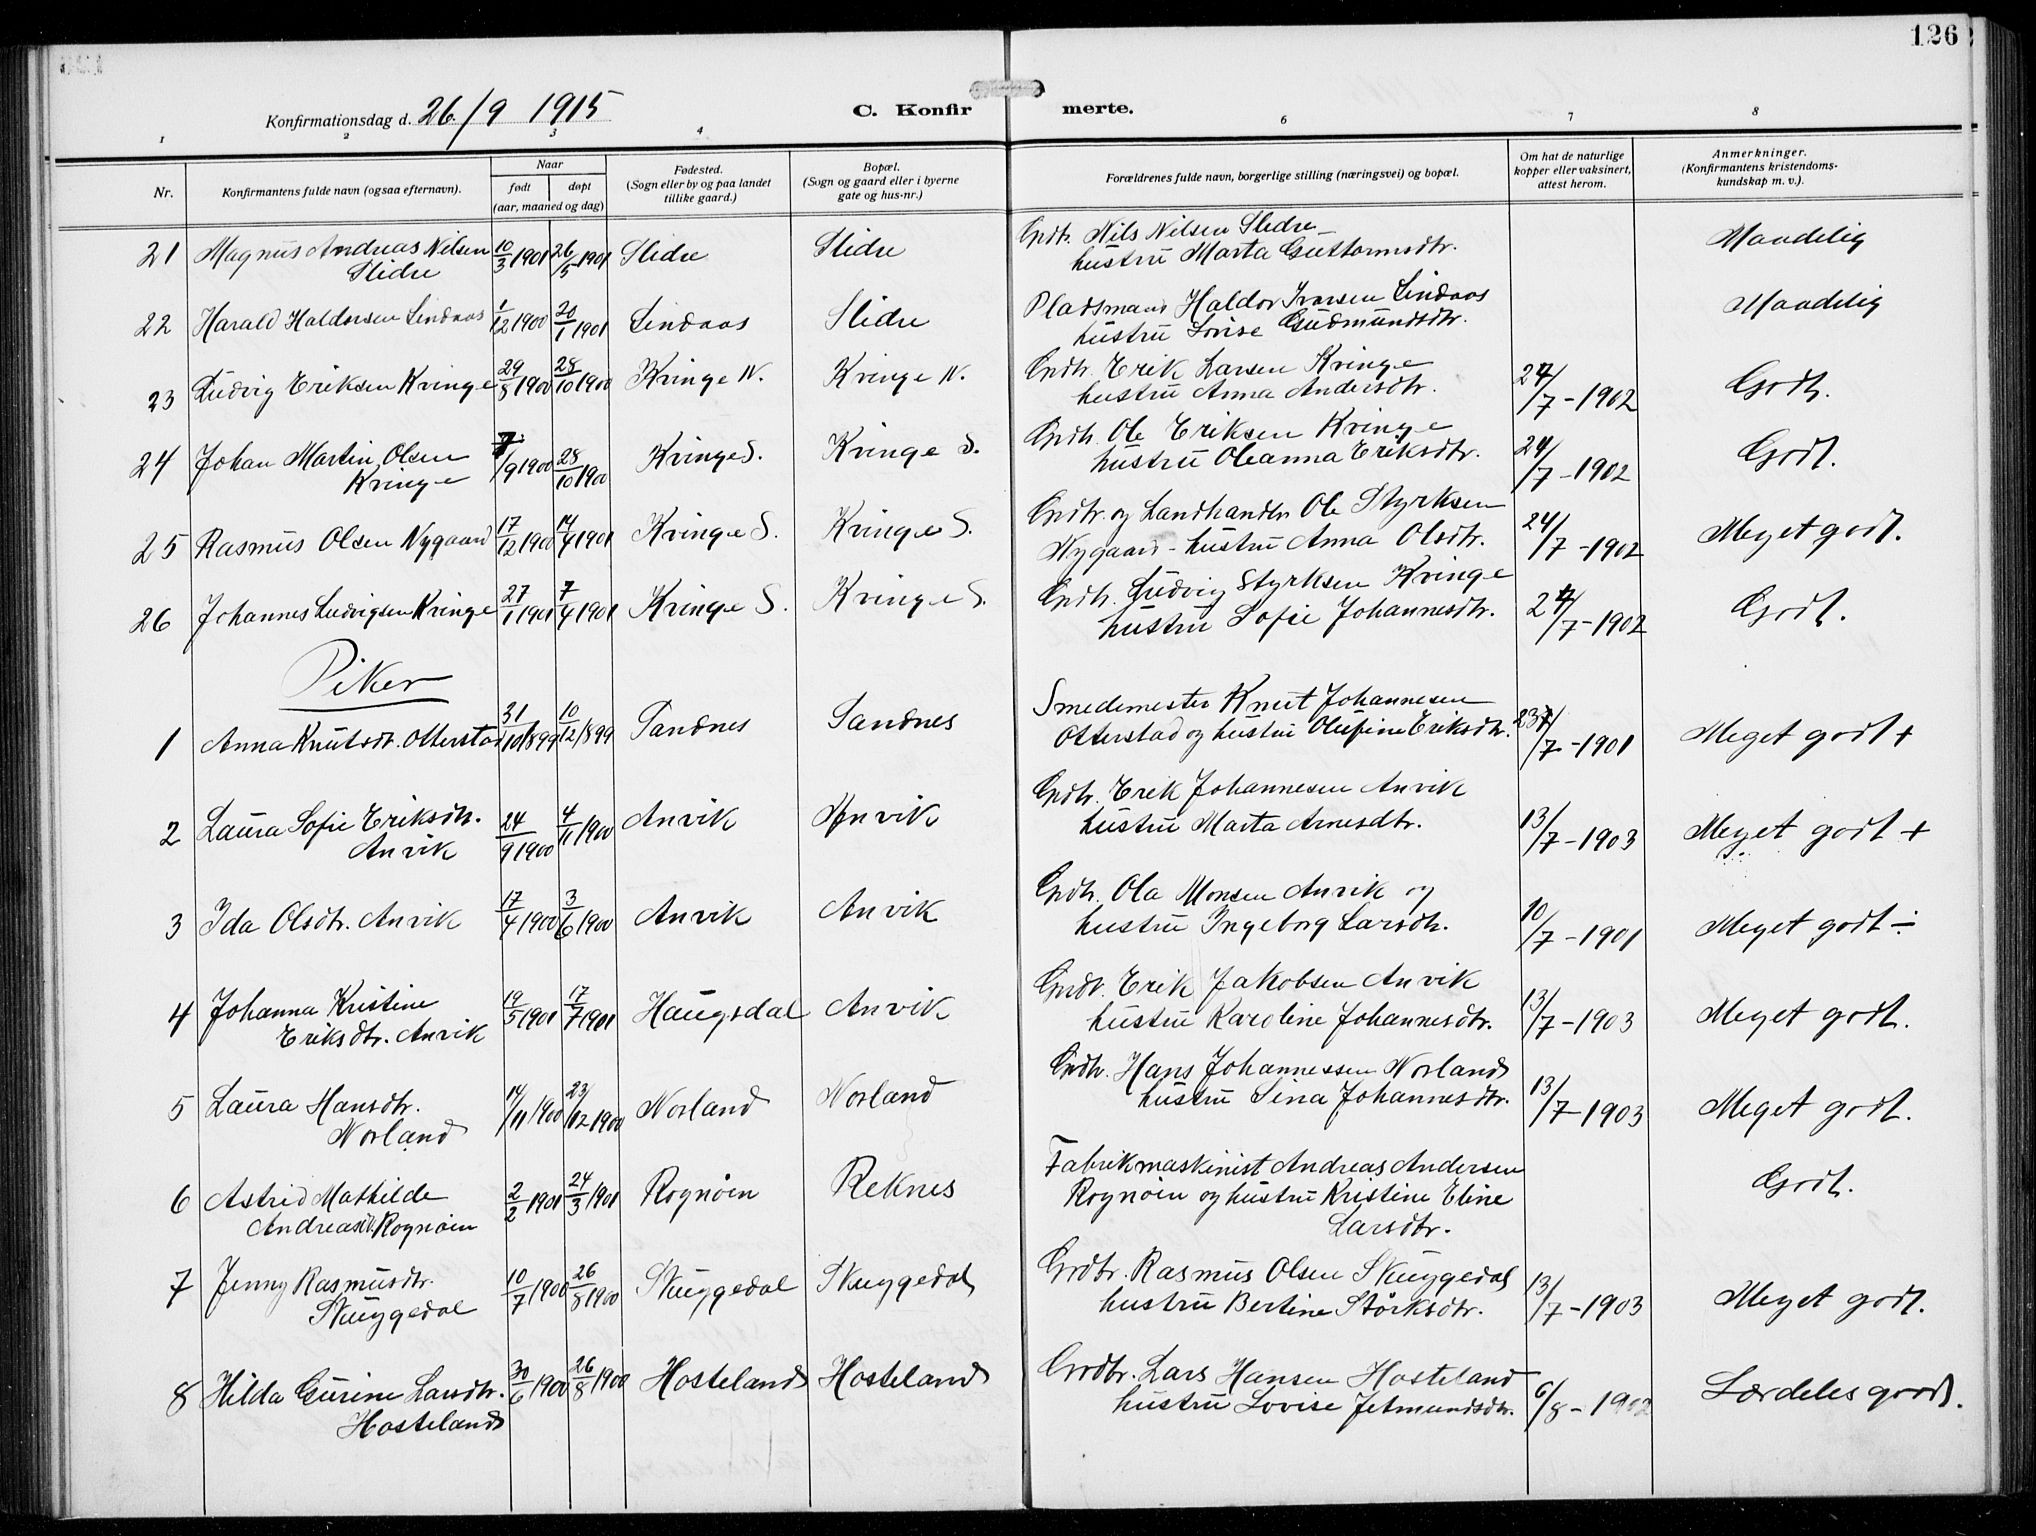 126
Konfirmationsdag d. 26/9 1915
C. Konfirmerte.
1 2 3 4 6 7 8
Nr. Konfirmantens fulde navn (ogsaa efternavn). Naar født døpt (aar, maaned og dag) Fødested. (Sogn eller by og paa landet tillike gaard.) Bopæl. (Sogn og gaard eller i byerne gate og hus-nr.) Forældrenes fulde navn, borgerlige stilling (næringsvei) og bopæl. Om hat de naturlige kopper eller vaksinert, attest herom. Anmerkninger. (Konfirmantens kristendomskundskap m. v.).
21 Magnus Andreas Nilsen Slidre 10/3 1901 26/5 1901 Slidre Slidre Grdbr. Nils Nilsen Slidre hustru Marta Guttormsdtr. Maadelig
22 Harald Haldorsen Lindaas 1/12 1900 20/1 1901 Lindaas Slidre Pladsmand Haldor Ivarsen Lindaas hustru Lovise Gudmundsdtr. Maadelig
23 Ludvig Eriksen Kringe 29/8 1900 28/10 1900 Kringe N. Kringe N. Grdbr. Erik Larsen Kringe hustru Anna Andersdtr. 24/7-1902 Godt.
24 Johan Martin Olsen Kringe 7/9 1900 28/10 1900 Kringe S. Kringe S. Grdbr. Ole Eriksen Kringe hustru Oleanna Eriksdtr. 24/7-1902 Godt.
25 Rasmus Olsen Nygaard 17/12 1900 14/4 1901 Kringe S. Kringe S. Grdbr. og Landhandler Ole Styrksen Nygaard - hustru Anna Olsdtr. 24/7-1902 Meget godt.
26 Johannes Ludvigsen Kringe 27/1 1901 7/4 1901 Kringe S. Kringe S. Grdbr. Ludvig Styrksen Kringe hustru Sofie Johannesdtr. 24/7-1902 Godt.
Piker
1 Anna Knutsdtr. Otterstad 31/10 1899 10/12 1899 Sandnes Sandnes Smedemester Knut Johannesen Otterstad og hustru Olufine Eriksdtr. 23/7-1901 Meget godt +
2 Laura Sofie Eriksdtr. Anvik 24/9 1900 4/11 1900 Anvik Anvik Grdbr. Erik Johannesen Anvik hustru Marta Arnesdtr. 13/7-1903 Meget godt +
3 Ida Olsdtr. Anvik 17/4 1900 3/6 1900 Anvik Anvik Grdbr. Ola Monsen Anvik og hustru Ingeborg Larsdtr. 10/7-1901 Meget godt ÷
4 Johanna Kristine Eriksdtr. Anvik 19/5 1901 17/7 1901 Haugsdal Anvik Grdbr. Erik Jakobsen Anvik hustru Karoline Johannesdtr. 13/7-1903 Meget godt.
5 Laura Hansdtr. Norland 14/11 1900 23/12 1900 Norland Norland Grdbr. Hans Johannessen Norland hustru Sina Johannesdtr. 13/7-1903 Meget godt.
6 Astrid Mathilde Andreasdtr. Rognøien 2/2 1901 24/3 1901 Rognøien Reknes Fabrikmaskinist Andreas Andersen Rognøien og hustru Kristine Eline Larsdtr. Godt.
7 Jenny Rasmusdtr. Skuggedal 10/7 1900 26/8 1900 Skuggedal Skuggedal Grdbr. Rasmus Olsen Skuggedal hustru Bertine Størksdtr. 13/7-1903 Meget godt.
8 Hilda Gurine Larsdtr. Hosteland 30/6 1900 26/8 1900 Hosteland Hosteland Grdbr. Lars Hansen Hosteland hustru Lovise Jetmundsdtr. 6/8-1902 Særdeles godt.